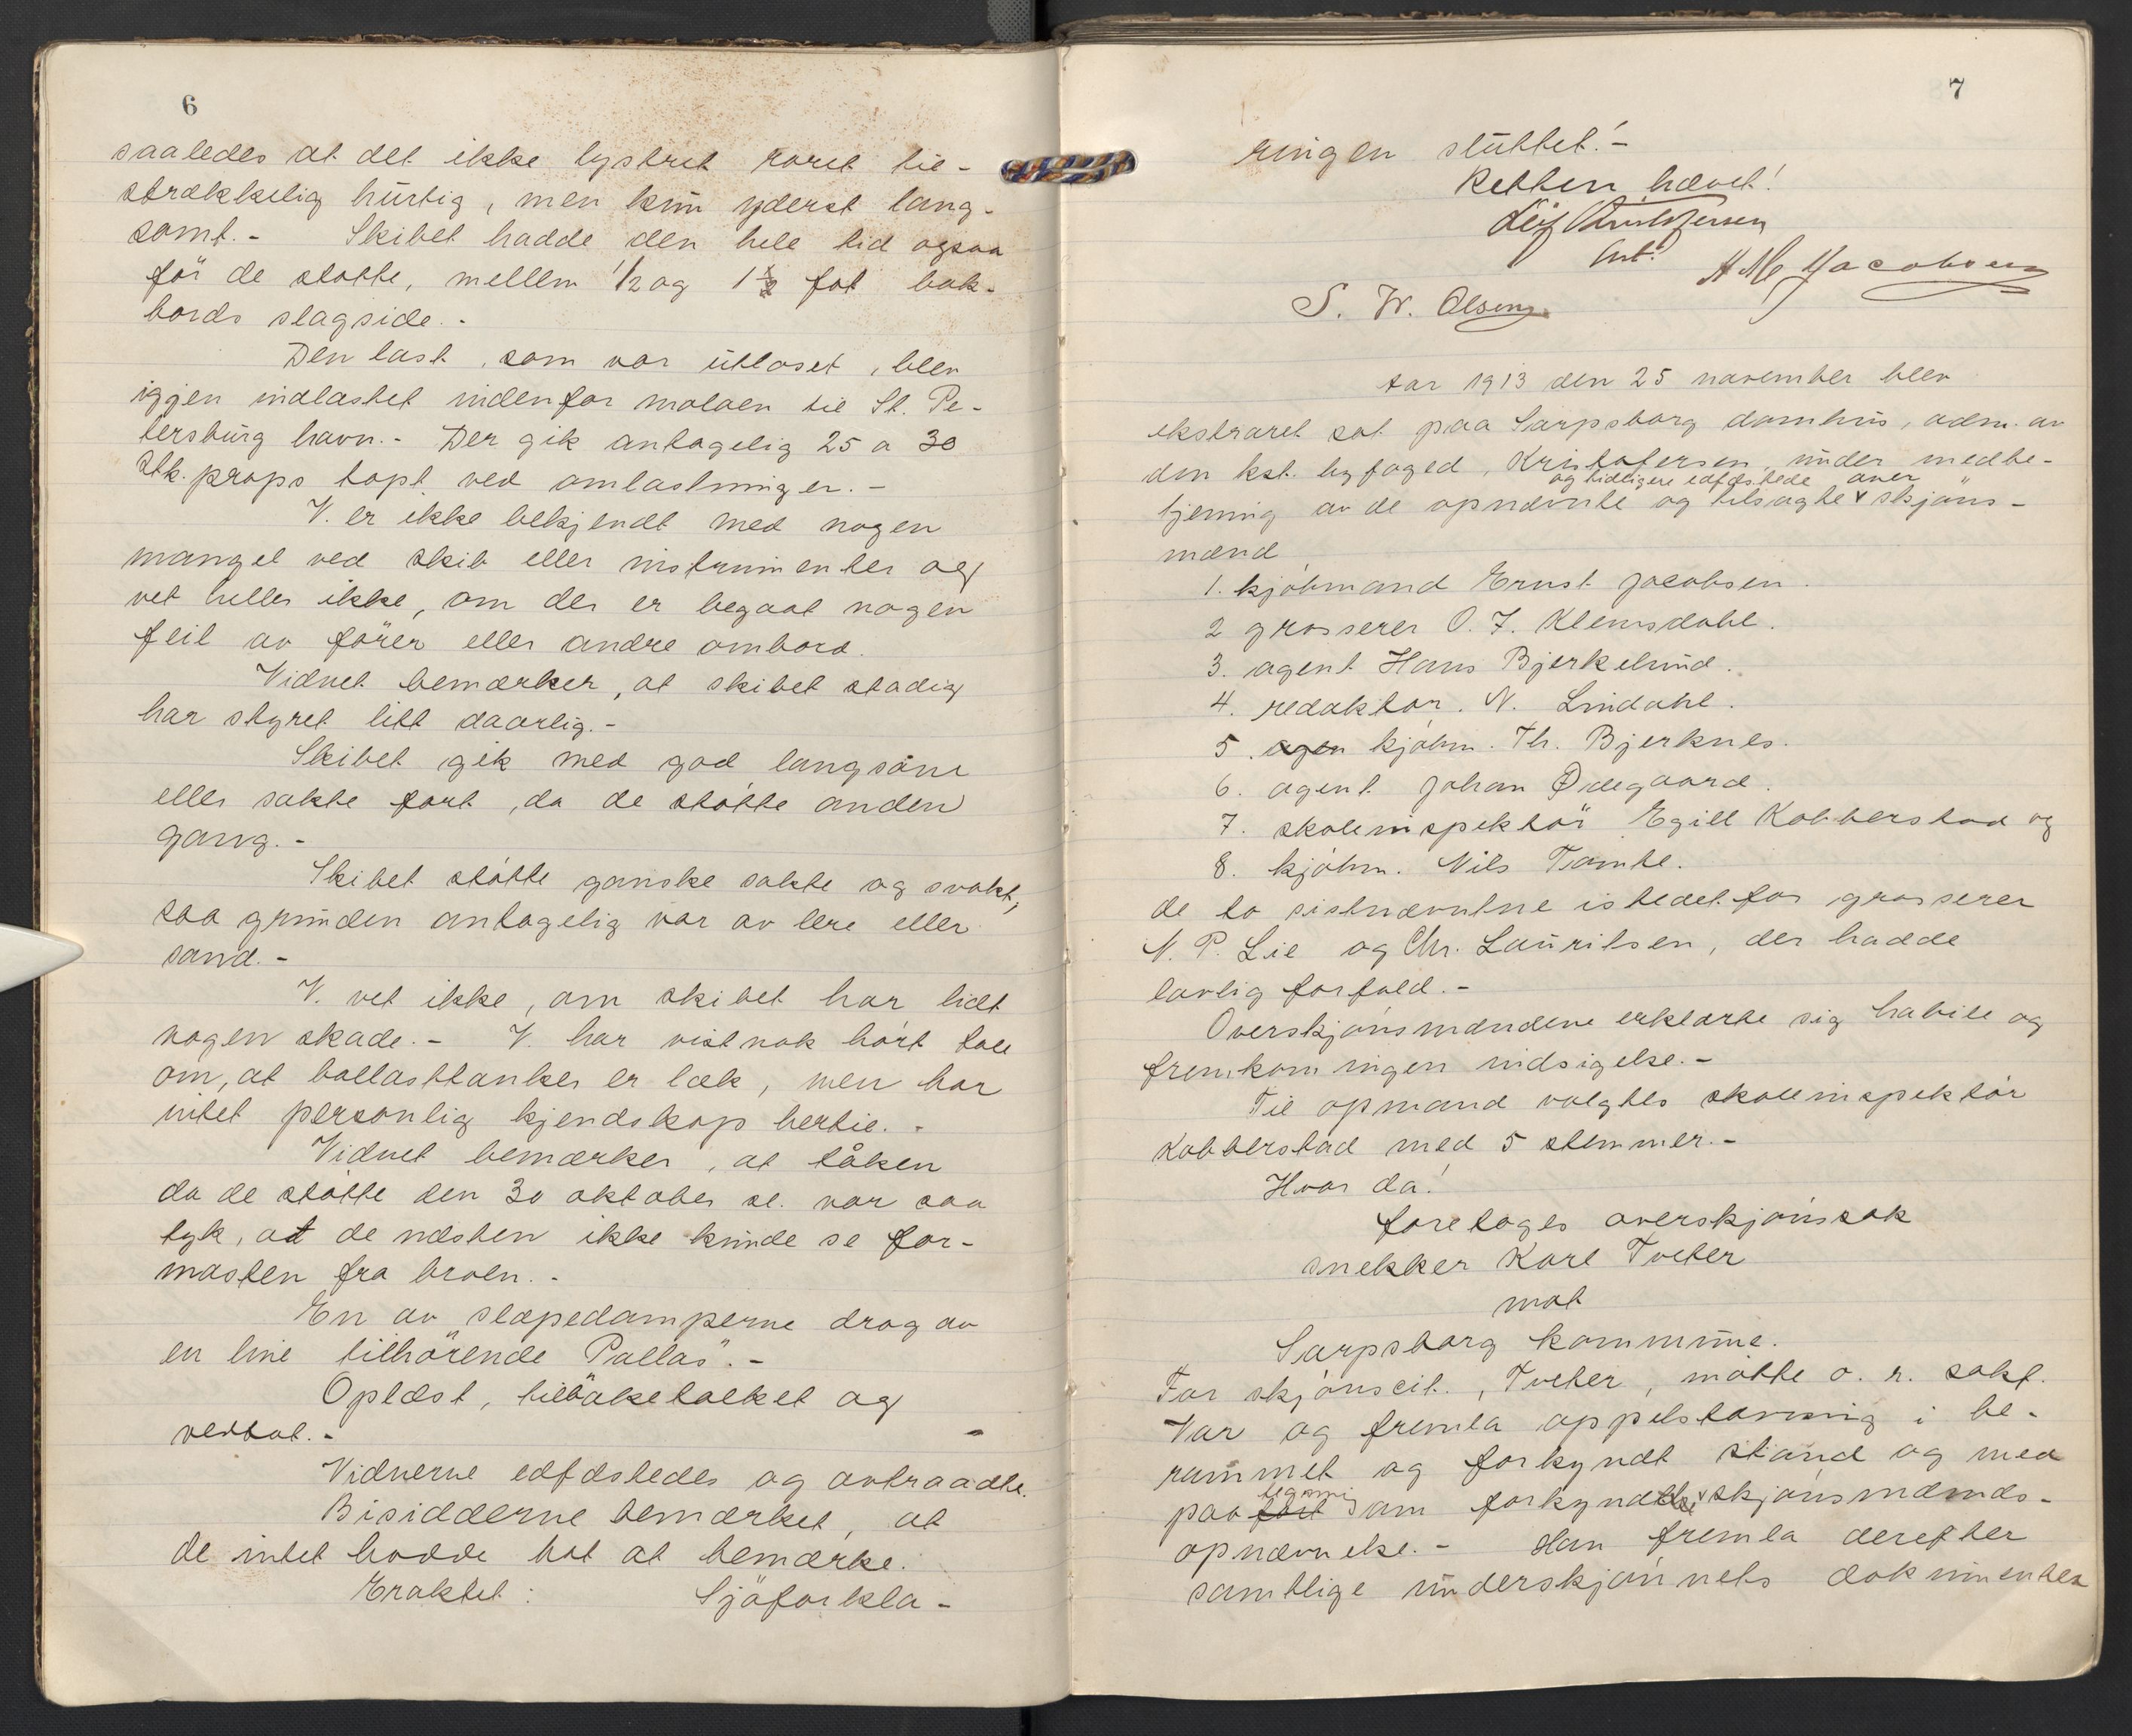 6
saaledes at det ikke lystret roret til-
strækkelig hurtig, men kun yderst lang-
somt.- Skibet hadde den hele tid ogsaa
før de støtte, mellem 1/2 og 1 1/2 fot bak-
bords slagside.-
Den last, som var utlosset, blev
igjen indlastet indenfor moloen til St. Pe-
tersburg havn.- Der gik antagelig 25 a 30
stk. props tapt ved omlastningen.-
V. er ikke bekjendt med nogen
mangel ved skib eller instrumenter og
vet heller ikke, om der er begaat nogen
feil av fører eller andre ombord.
Vidnet bemærker, at skibet stadig
har styret litt daarlig.-
Skibet gik med god langsom
eller sakte fart, da de støtte anden
gang.-
Skibet støtte ganske sakte og svakt,
saa grunden antagelig var av lere eller
sand.-
V. vet ikke, om skibet har lidt
nogen skade.- V. har vistnok hørt tale
om, at ballasttanken er læk, men har
intet personlig kjendskap hertil.-
Vidnet bemærker, at tåken
da de støtte den 30 oktober sl. var saa
tyk, at de næsten ikke kunde se for-
masten fra broen.-
En av slæpedamperne drog av
en line tilhørende "Pallas".-
Oplæst, tilbaketolket og
vedtat.-
Vidnerne edfæstedes og avtraadte.
Bisidderne bemærket, at
de intet hadde hat at bemærke.
Eraktet: Sjøforkla-
7
ringen sluttet!-
Retten hævet!
Leif Kristofersen
cnst.
H M Jacobsen
S. W. Olsen
Aar 1913 den 25 november blev
ekstraret sat paa Sarpsborg domhus, adm. av
den kst. byfoged, Kristofersen under medbe-
og tidligere edfæstede over
tjening av de opnævnte og tilsagte v skjøns-
mænd
1. kjøbmand Ernst Jacobsen.
2 grosserer O. J. Klemsdahl.
3. agent Hans Bjerkelund.
4. redaktør. N. Lindahl.
5. agen kjøbm. Th. Bjerknes.
6. agent Johan Ødegaard.
7. skoleinspektør Egill Kobberstad og
8. kjøbm. Nils Tombe.
de to sistnævnte istedetfor grosserer
N. P. Lie og Chr. Lauritsen, der hadde
lovlig forfald.-
Overskjønsmændene erklærte sig habile og
fremkom ingen indsigelse.-
Til opmand valgtes skoleinspektør
Kobberstad med 5 stemmer.-
Hvor da!
foretages overskjønssak
snekker Karl Tveter
mot
Sarpsborg kommune.
For skjønscit., Tveter, møtte o. r. sakf.
Var og fremla appelstevning i be-
rammet og forkyndt stand og med
tegning
paa fort om forkyndte v skjønsmænds-
opnævnelse.- Han fremla derefter
samtlige underskjønnets dokumenter